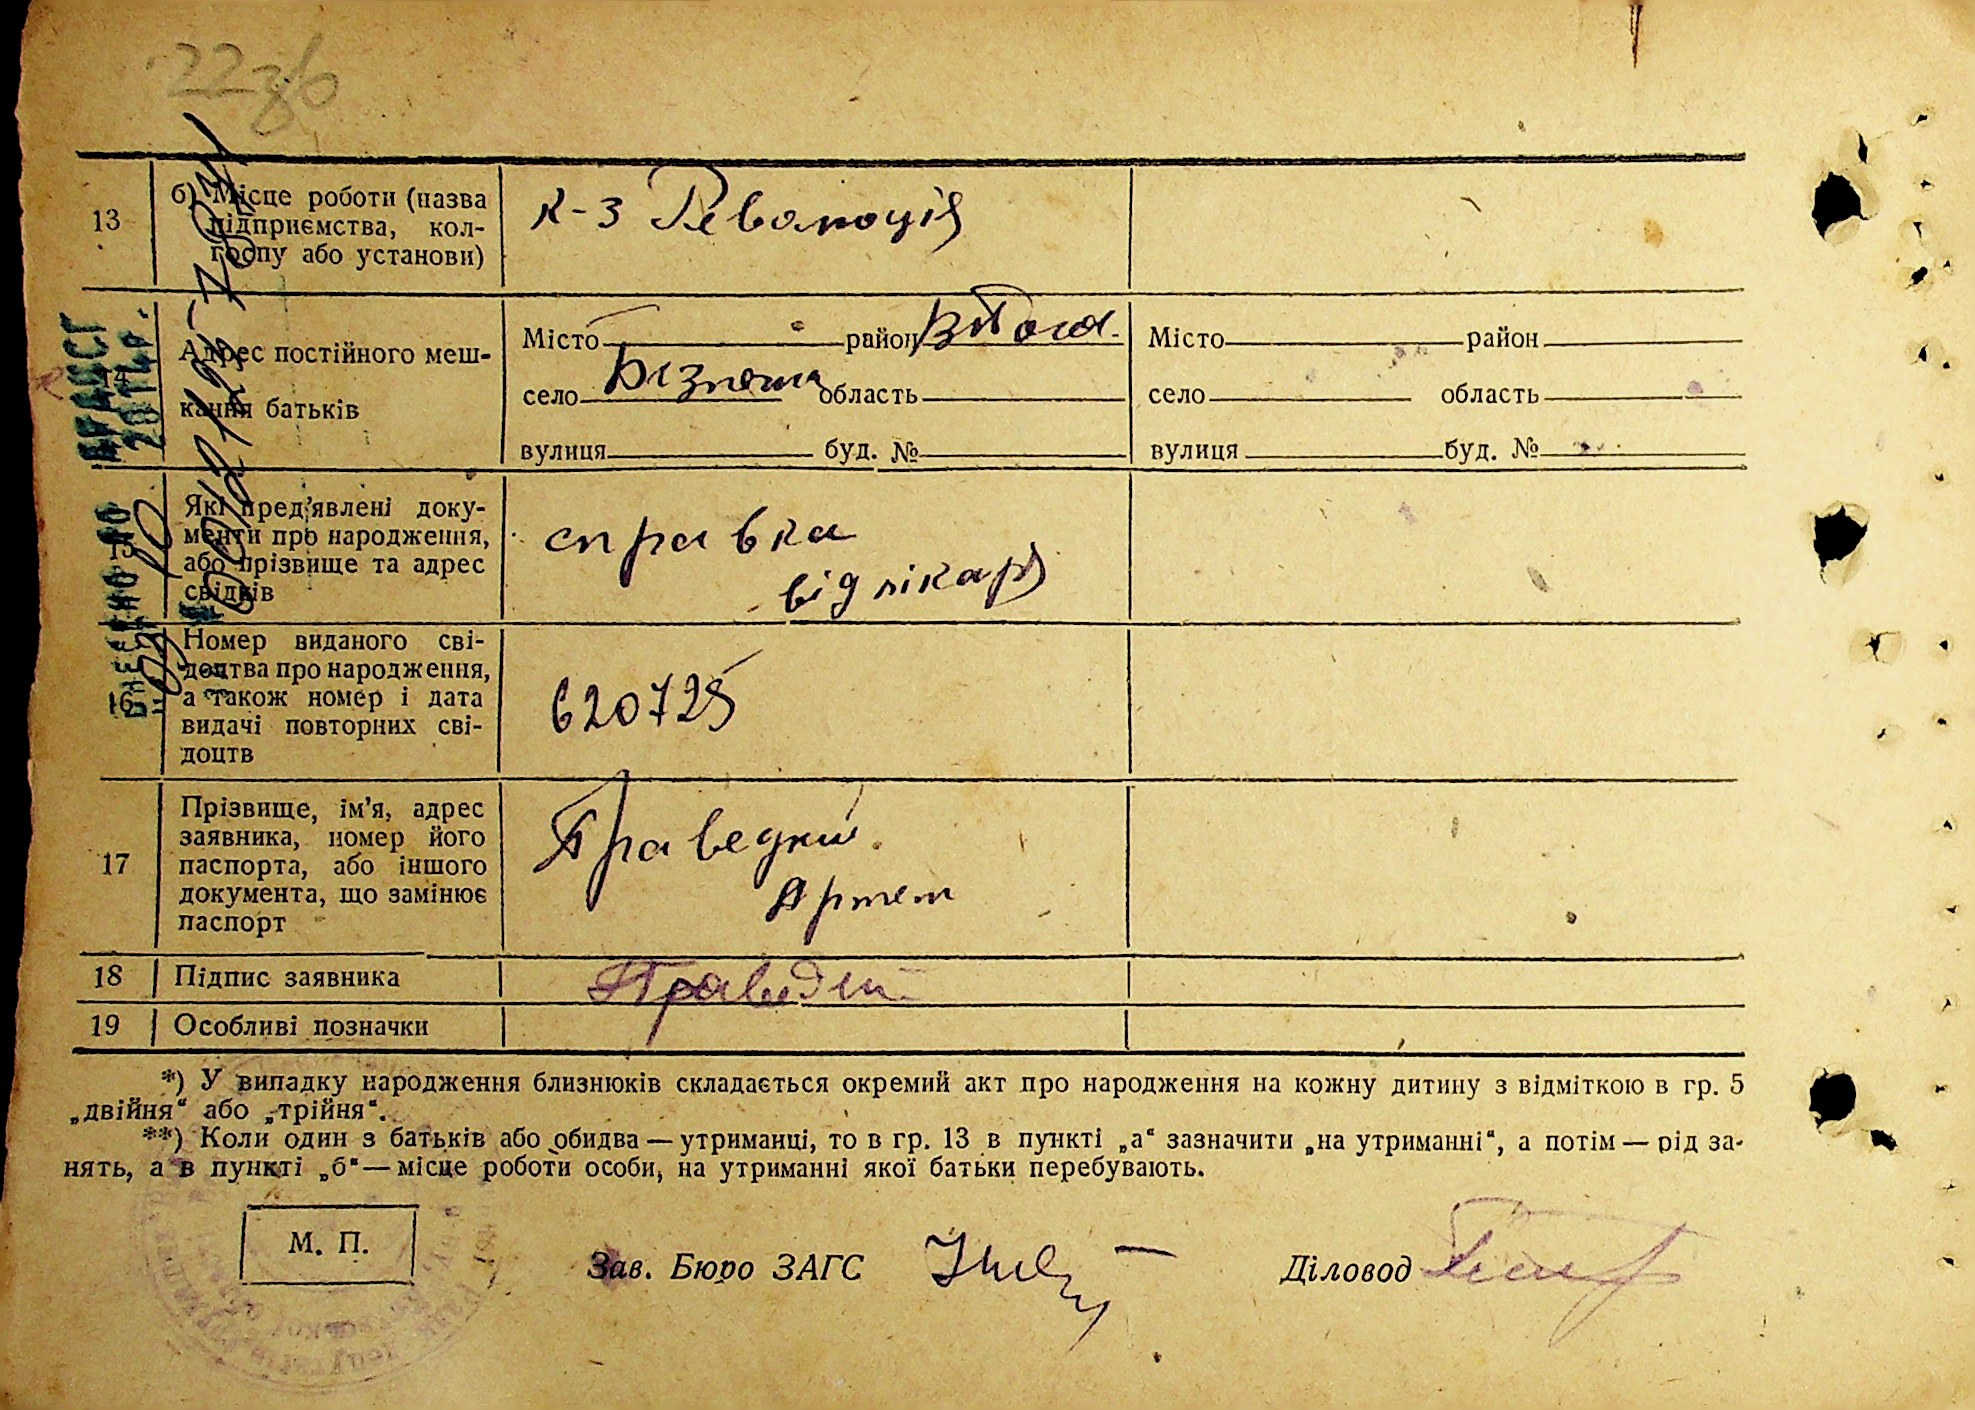 13
б) Місце роботи (назва
підприємства, кол-
госпу або установи)
к-з Революція
14
Адрес постійного меш-
кання батьків
Місто район
село область
вулиця буд. №
Місто район
село область
вулиця буд. №
15
Які пред'явлені доку-
менти про народження,
або прізвище та адрес
свідків
справка
від лікаря
16
Номер виданого сві-
доцтва про народження,
а також номер і дата
видачі повторних сві-
доцтв
620725
17
Прізвище, ім'я, адрес
заявника, номер його
паспорта, або іншого
документа, що замінює
паспорт
Праведний
Артем
18 Підпис заявника
19 Особливі позначки
*) У випадку народження близнюків складається окремий акт про народження на кожну дитину з відміткою в гр. 5
„двійня“ або „трійня“.
**) Коли один з батьків або обидва — утриманці, то в гр. 13 в пункті „а“ зазначити „на утриманні“, а потім — рід за-
нять, а в пункті „б“ — місце роботи особи, на утриманні якої батьки перебувають.
М. П.
Зав. Бюро ЗАГС
Діловод